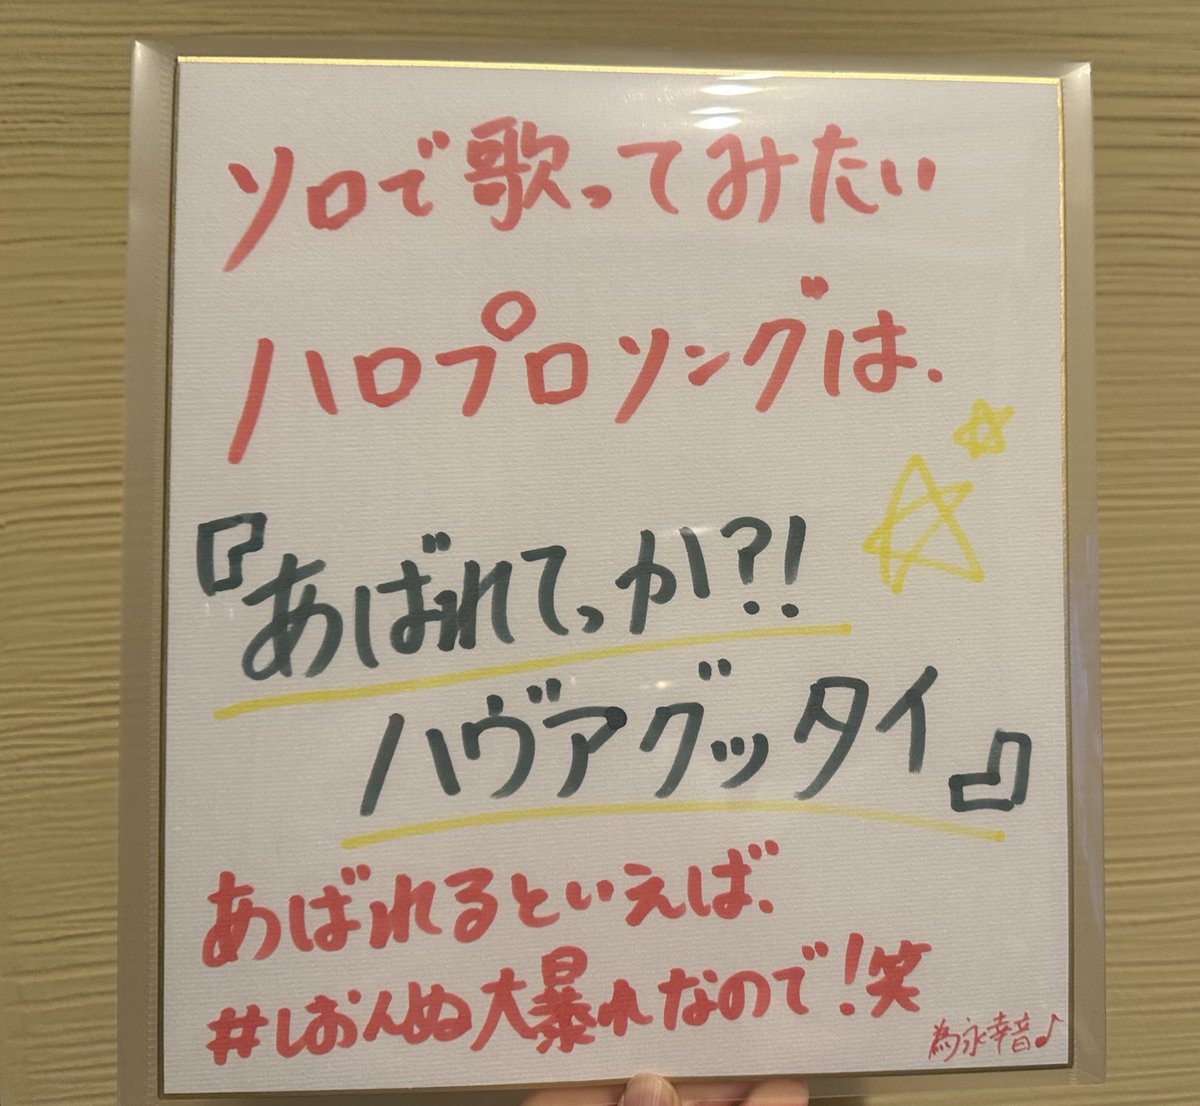 ソロで歌ってみたい
ハロプロソングは、
『あばれてっか?!
ハヴアグッタイ』
あばれるといえば、
#しおんぬ大暴れなので!笑
為永幸音♪